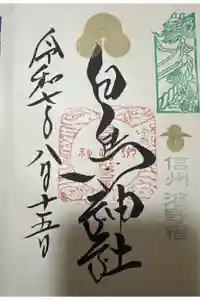 白鳥神社
令和七年八月十五日
信州 海野宿